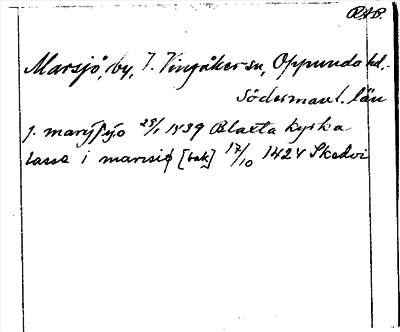 RAP.
Marsjö, by, V. Vingåker sn, Oppunda hd,
Södermanl. län
j. marysyo 29/1 1539 Blacta kyrka
lasse i marisiø [bak] 17/10 1424 Skedvi